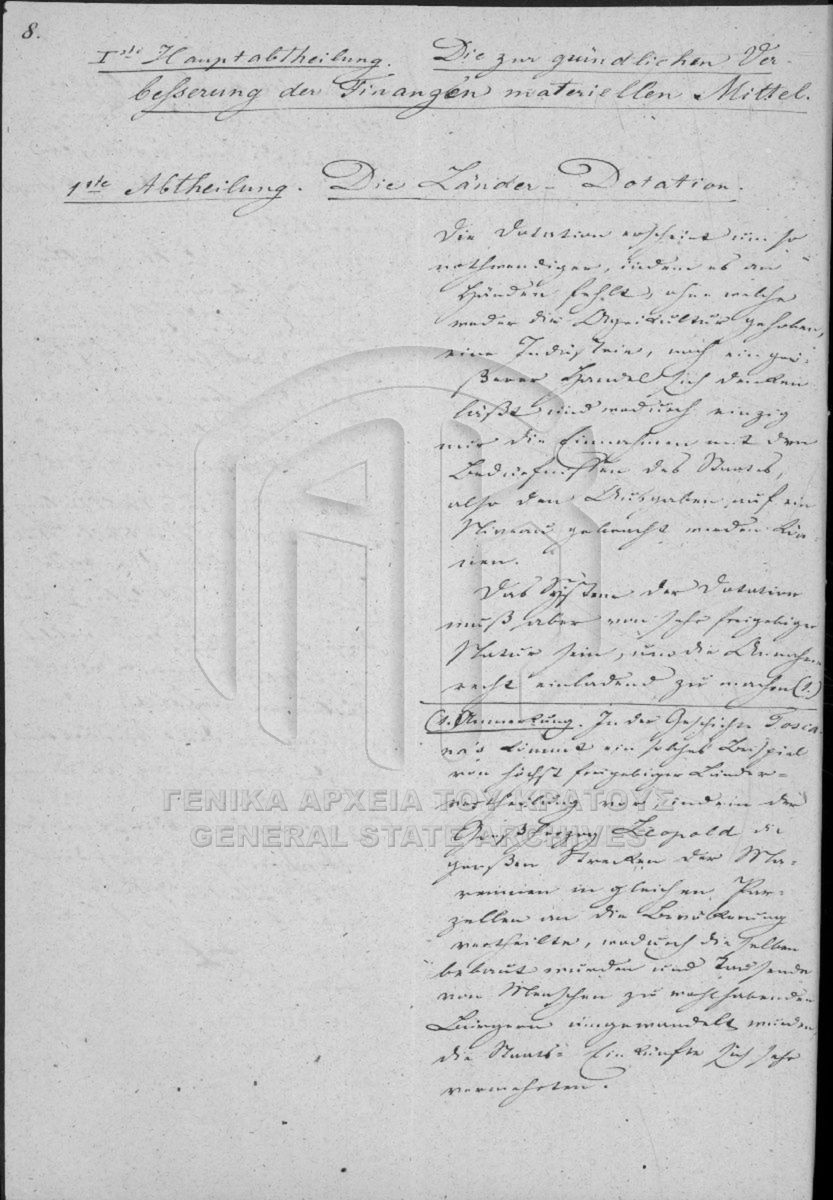 8.
I.ste Hauptabtheilung. Die zur gründlichen Ver-
besserung der Finanzen materiellen Mittel.
1ste Abtheilung. Die Länder-Dotation.
Die Dotation erscheint um so
nothwendiger, indem es an
Händen fehlt, ohne welche
weder die Agrikultur gehoben,
eine Industrie, noch ein grö-
ßerer Handel sich denken
läßt und wodurch einzig
nur die Einnahmen mit den
Bedürfnissen des Staates,
also den Ausgaben auf ein
Niveau gebracht werden kön-
nen.
Das System der Dotation
muß aber von sehr freigebiger
Natur sein, um die Annahme
recht einladend zu machen (1.)
(1. Anmerkung. In der Geschichte Tosca-
na's kömmt ein solches Beispiel
von höchst freigebiger Länder-
vertheilung vor, indem der
Großherzog Leopold die
großen Strecken der Ma-
remmen in gleichen Par-
zellen an die Bevölkerung
vertheilte, wodurch dieselben
bebaut wurden und Tausende
von Menschen zu wohlhabenden
Bürgern umgewandelt wurden,
die Staats-Einkünfte sich sehr
vermehrten.
ΓΕΝΙΚΑ ΑΡΧΕΙΑ ΤΟΥ ΚΡΑΤΟΥΣ
GENERAL STATE ARCHIVES